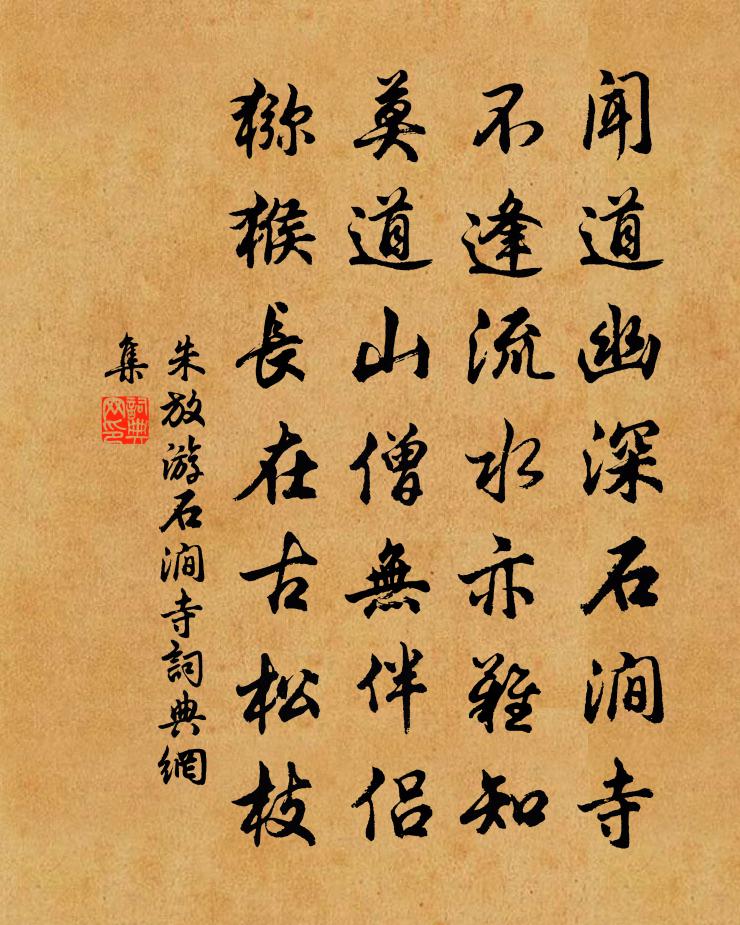 闻道幽深石澗寺
不逢流水亦難知
莫道山僧無伴侶
猕猴長在古松枝
朱放游石澗寺詞典網
集
詞典
网印